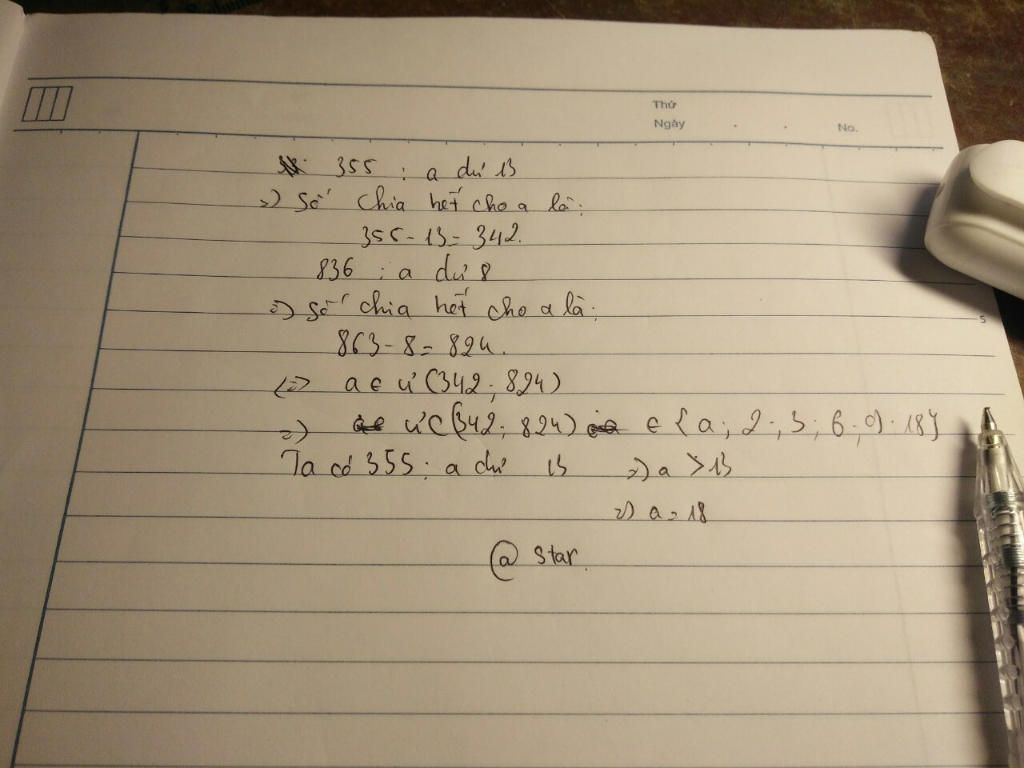 Thứ
Ngày
No.
355 : a dư 13
=) Số chia hết cho a là:
355-13=342.
836 : a dư 8
=) Số chia hết cho a là:
863-8=824.
<=> a ∈ ƯC(342; 824)
=) ƯC(342; 824) ∈ {a; 2; 3; 6; 9; 18}
5
Ta có 355 : a dư 13 =) a > 13
=) a = 18
@ star.